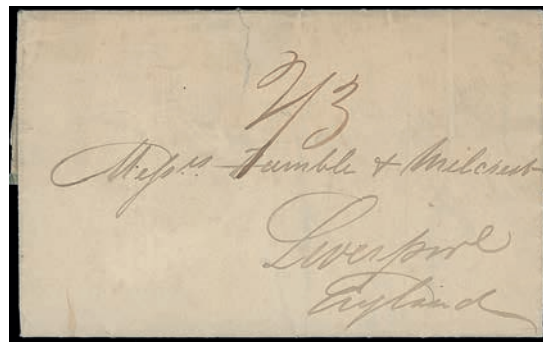 2/3
Messrs Tumble & Milcrest
Liverpool
England